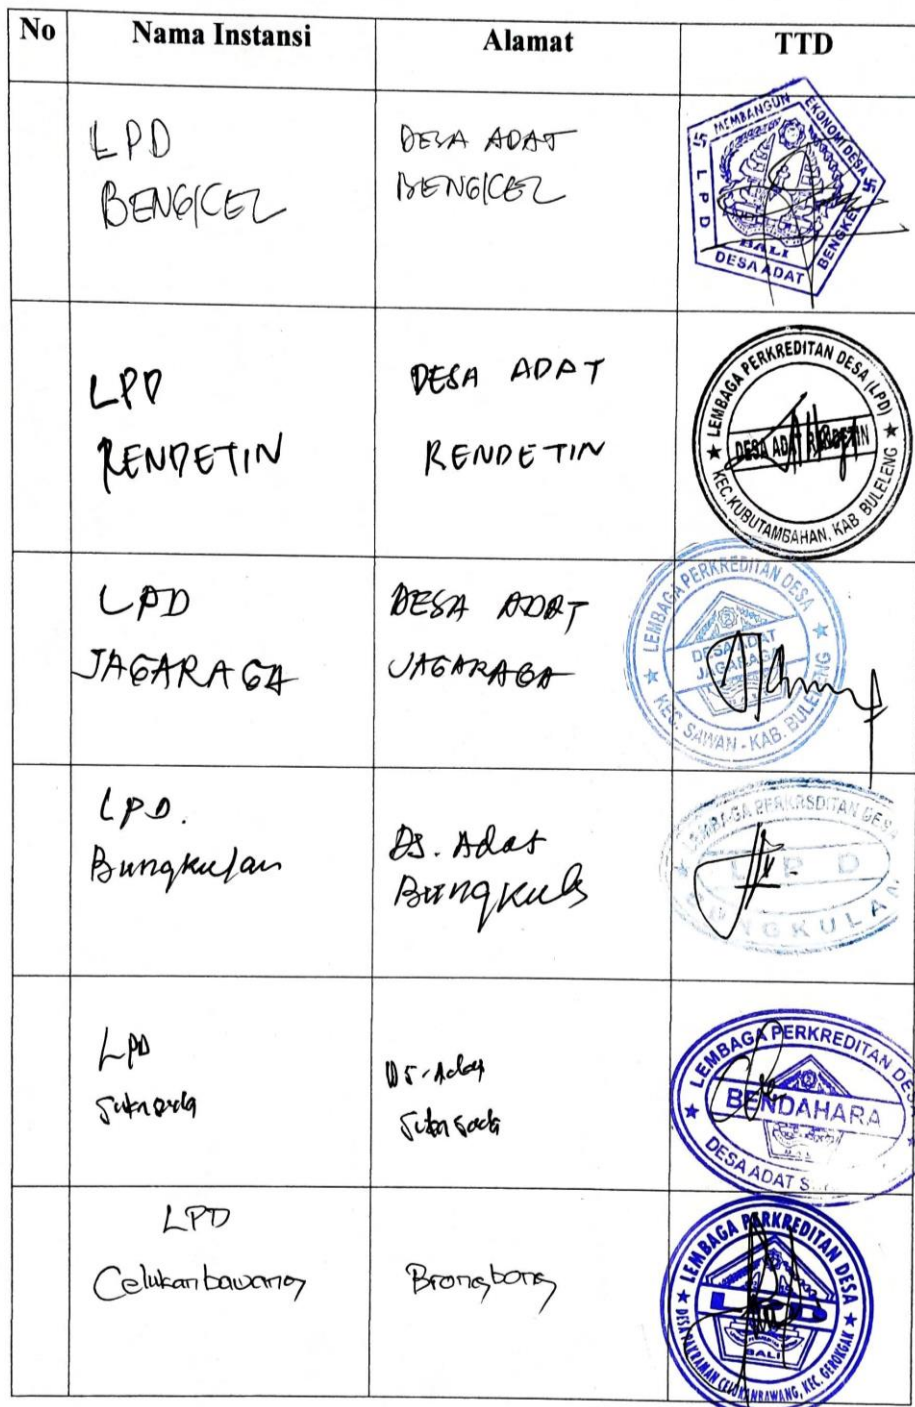 No Nama Instansi Alamat TTD
LPD
BENGKEL
DESA ADAT
BENGKEL
MEMBANGUN EKONOMI DESA
LPD
BALI
DESA ADAT BENGKEL
LPD
RENDETIN
DESA ADAT
RENDETIN
LEMBAGA PERKREDITAN DESA (LPD)
DESA ADAT
KEC.KUBUTAMBAHAN, KAB BULELENG
LPD
JAGARAGA
DESA ADAT
JAGARAGA
LEMBAGA PERKREDITAN DESA
DESA ADAT
JAGARAGA
KEC. SAWAN - KAB. BULELENG
LPD.
Bungkulan
Ds. Adat
Bungkul
LEMBAGA PERKRSDITAN DESA
LPD
BUNGKULAN
LPD
Sukasada
Ds. Adat
Sukasada
LEMBAGA PERKREDITAN DESA
BENDAHARA
DESA ADAT
LPD
Celukanbawang
Brongbong
LEMBAGA PERKREDITAN DESA
LPD
BALI
DESA PAKRAMAN CELUKANBAWANG, KEC. GEROKGAK